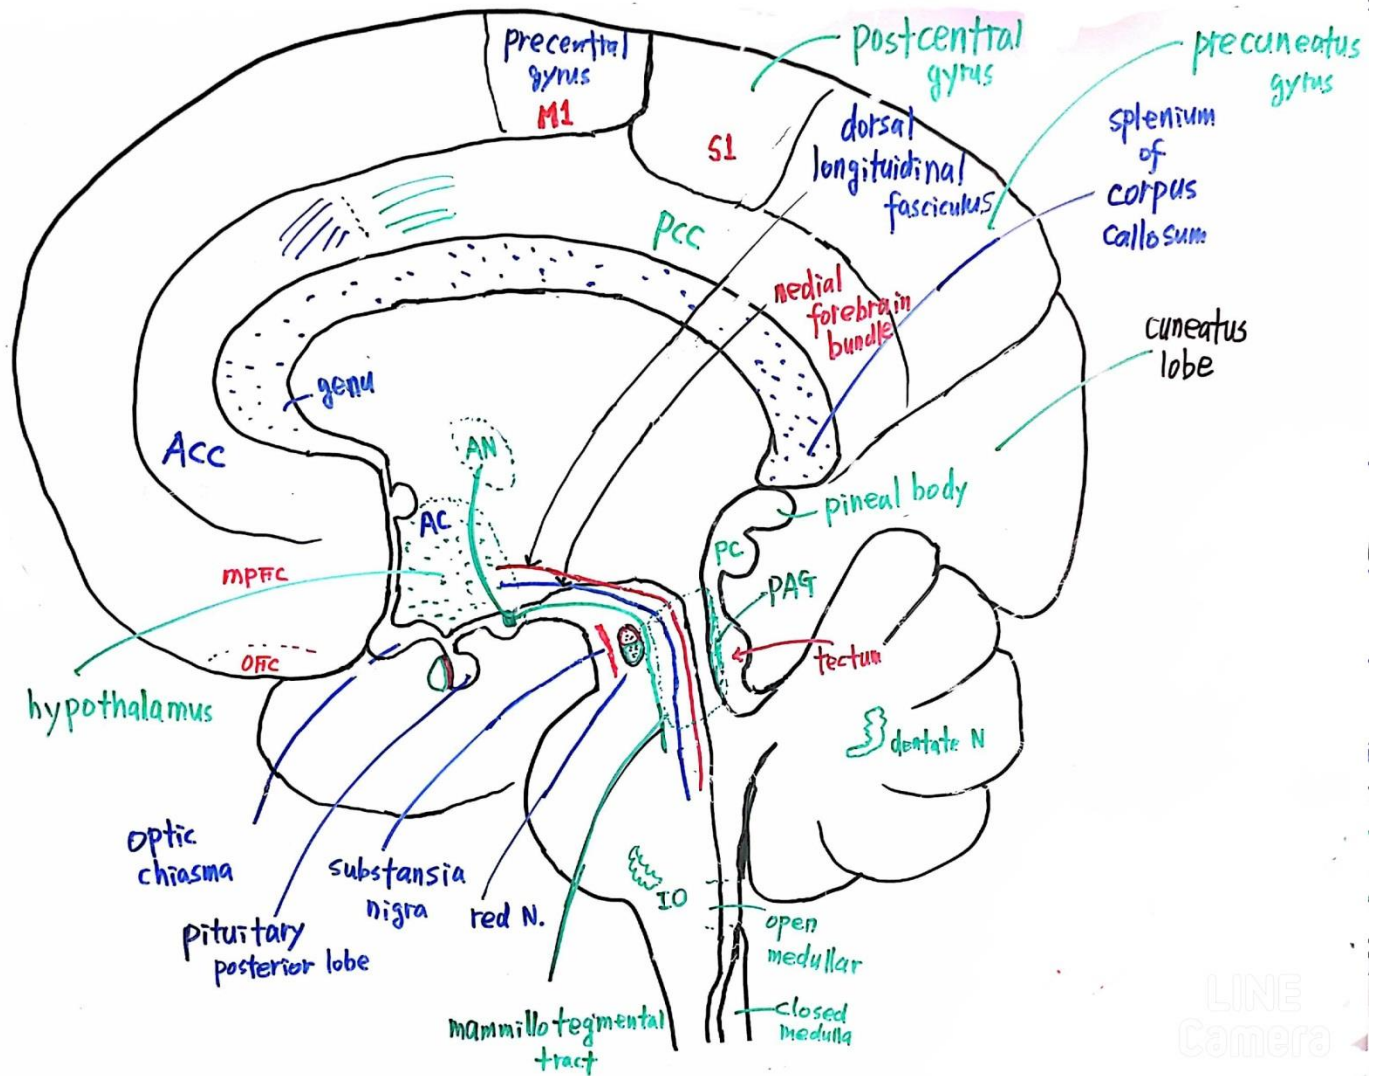 precentral
gyrus
M1
postcentral
gyrus
precuneatus
gyrus
S1
dorsal
longituidinal
fasciculus
splenium
of
corpus
callosum
PCC
medial
forebrain
bundle
cuneatus
lobe
genu
ACC
AN
AC
pineal body
PC
PAG
mPFC
OFC
tectum
hypothalamus
dentate N
optic
chiasma
substansia
nigra
red N.
IO
pituitary
posterior lobe
open
medullar
mammillo tegmental
tract
closed
medulla
LINE
Camera